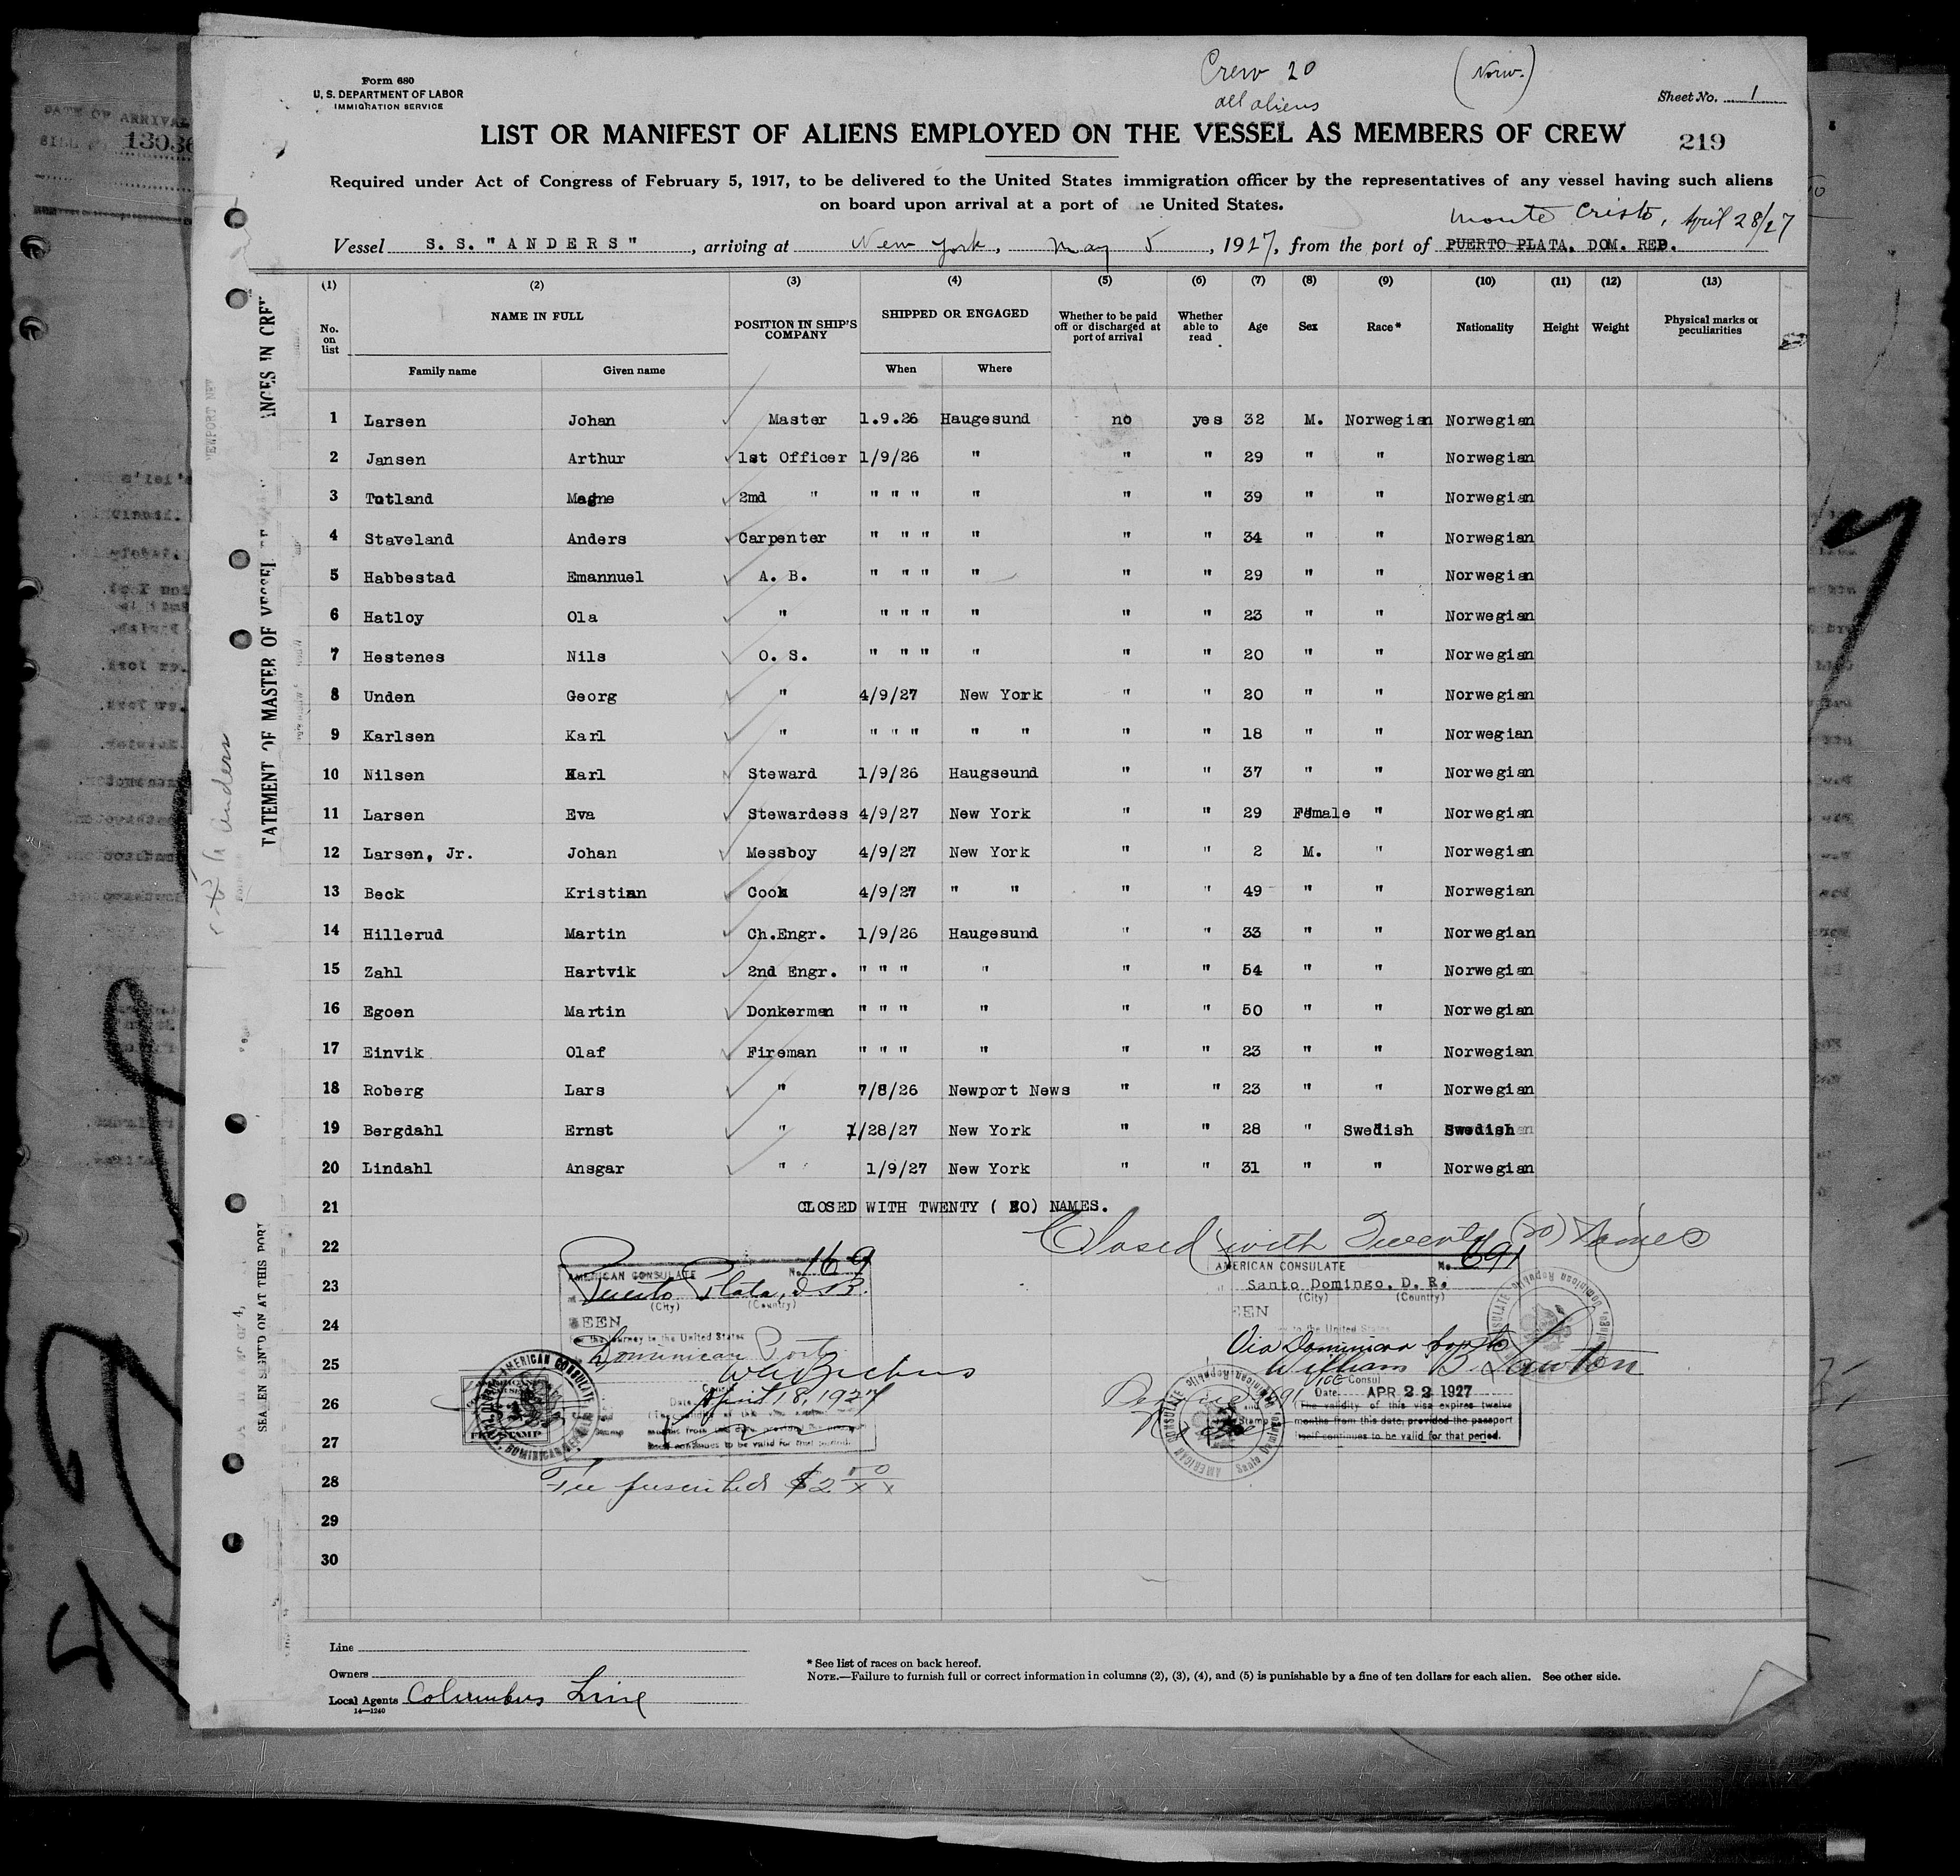 Crew 20 (Norw.)
all aliens
Form 680
U. S. DEPARTMENT OF LABOR
IMMIGRATION SERVICE
Sheet No. 1
LIST OR MANIFEST OF ALIENS EMPLOYED ON THE VESSEL AS MEMBERS OF CREW
219
Required under Act of Congress of February 5, 1917, to be delivered to the United States immigration officer by the representatives of any vessel having such aliens
on board upon arrival at a port of he United States.
Monte Cristo, April 28/27
Vessel S. S. "ANDERS", arriving at New York, May 5, 1927, from the port of PUERTO PLATA, DOM. REP.
(1) (2) (3) (4) (5) (6) (7) (8) (9) (10) (11) (12) (13)
No. on list NAME IN FULL POSITION IN SHIP'S COMPANY SHIPPED OR ENGAGED Whether to be paid off or discharged at port of arrival Whether able to read Age Sex Race* Nationality Height Weight Physical marks or peculiarities
Family name Given name When Where
1 Larsen Johan Master 1.9.26 Haugesund no yes 32 M. Norwegian Norwegian
2 Jansen Arthur 1st Officer 1/9/26 " " " 29 " " Norwegian
3 Totland Magne 2md " " " " " " " 39 " " Norwegian
4 Staveland Anders Carpenter " " " " " " 34 " " Norwegian
5 Habbestad Emannuel A. B. " " " " " " 29 " " Norwegian
6 Hatloy Ola " " " " " " " 23 " " Norwegian
7 Hestenes Nils O. S. " " " " " " 20 " " Norwegian
8 Unden Georg " 4/9/27 New York " " 20 " " Norwegian
9 Karlsen Karl " " " " " " " " 18 " " Norwegian
10 Nilsen Karl Steward 1/9/26 Haugseund " " 37 " " Norwegian
11 Larsen Eva Stewardess 4/9/27 New York " " 29 Female " Norwegian
12 Larsen, Jr. Johan Messboy 4/9/27 New York " " 2 M. " Norwegian
13 Beck Kristian Cook 4/9/27 " " " " 49 " " Norwegian
14 Hillerud Martin Ch.Engr. 1/9/26 Haugesund " " 33 " " Norwegian
15 Zahl Hartvik 2nd Engr. " " " " " " 54 " " Norwegian
16 Egoen Martin Donkerman " " " " " " 50 " " Norwegian
17 Einvik Olaf Fireman " " " " " " 23 " " Norwegian
18 Roberg Lars " 7/8/26 Newport News " " 23 " " Norwegian
19 Bergdahl Ernst " 1/28/27 New York " " 28 " Swedish Swedish
20 Lindahl Ansgar " 1/9/27 New York " " 31 " " Norwegian
21 CLOSED WITH TWENTY ( 20) NAMES.
22 Closed with Twenty (20) Names
23
24
25
26
27
28
29
30
No. 169
AMERICAN CONSULATE
Puerto Plata, D.R.
(City) (Country)
SEEN
For the journey to the United States
Dominican Ports
Date April 18, 1927
Fee prescribed $2.00
No. 691
AMERICAN CONSULATE
Santo Domingo, D. R.
(City) (Country)
SEEN
to the United States
Via Dominican ports
William B. Lawton
Vice Consul
Date APR 22 1927
The validity of this visa expires twelve
months from this date, provided the passport
itself continues to be valid for that period.
Line
Owners
Local Agents Columbus Line
14—1240
* See list of races on back hereof.
NOTE.—Failure to furnish full or correct information in columns (2), (3), (4), and (5) is punishable by a fine of ten dollars for each alien. See other side.
DATE OF ARRIVAL
13036
TATEMENT OF MASTER OF VESSEL
ANCES IN CREW
SEAMEN SIGNED ON AT THIS PORT